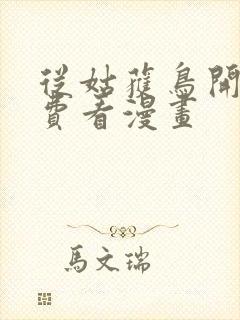 從姑獲鳥開
費看漫畫
馬文瑞